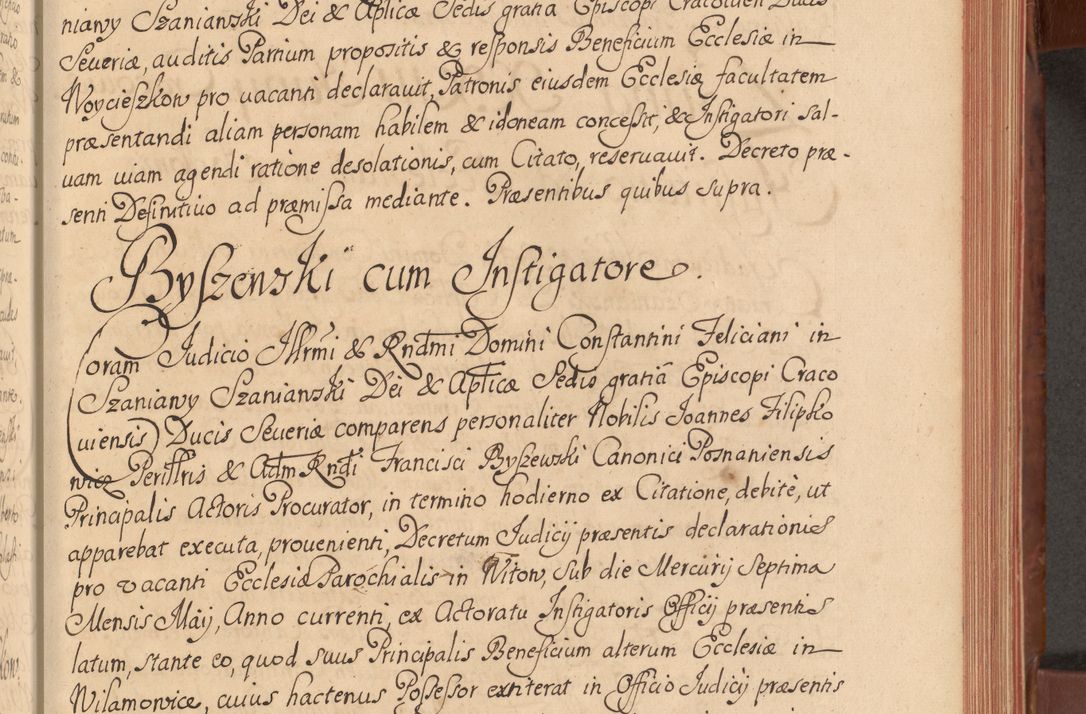 niawy Szaniawski Dei & Aplicæ Sedis gratia Episcopi Cracovien Ducis
Seueriæ, auditis Partium propositis & responsis Beneficium Ecclesiæ in
Woycieszkow pro uacanti declarauit, Patronis eiusdem Ecclesiæ facultatem
præsentandi aliam personam habilem & idoneam concessit, & Instigatori sal-
uam uiam agendi ratione desolationis, cum Citato, reseruauit. Decreto præ-
senti Definitiuo ad præmissa mediante. Præsentibus quibus supra.
Byszewski cum Instigatore.
Coram Judicio Illrmi & Rndmi Domini Constantini Feliciani in
Szaniawy Szaniawski Dei & Aplicæ Sedis gratiã Episcopi Craco
uiensis Ducis Seueriæ comparens personaliter Nobilis Joannes Filipko
wicz Perillris & Adm Rndi Francisci Byszewski Canonici Posnaniensis
Principalis Actoris Procurator, in termino hodierno ex Citatione, debitè, ut
apparebat executa, prouenienti, Decretum Judicij præsentis declarationis
pro vacanti Ecclesiæ Parochialis in Witow, sub die Mercurij Septima
Mensis Maij, Anno currenti, ex Actoratu Instigatoris Officij præsentis
latum, stante eo, quod suus Principalis Beneficium alterum Ecclesiæ in
Wilamowice, cuius hactenus Possessor extiterat in Officio Judicij præsentis